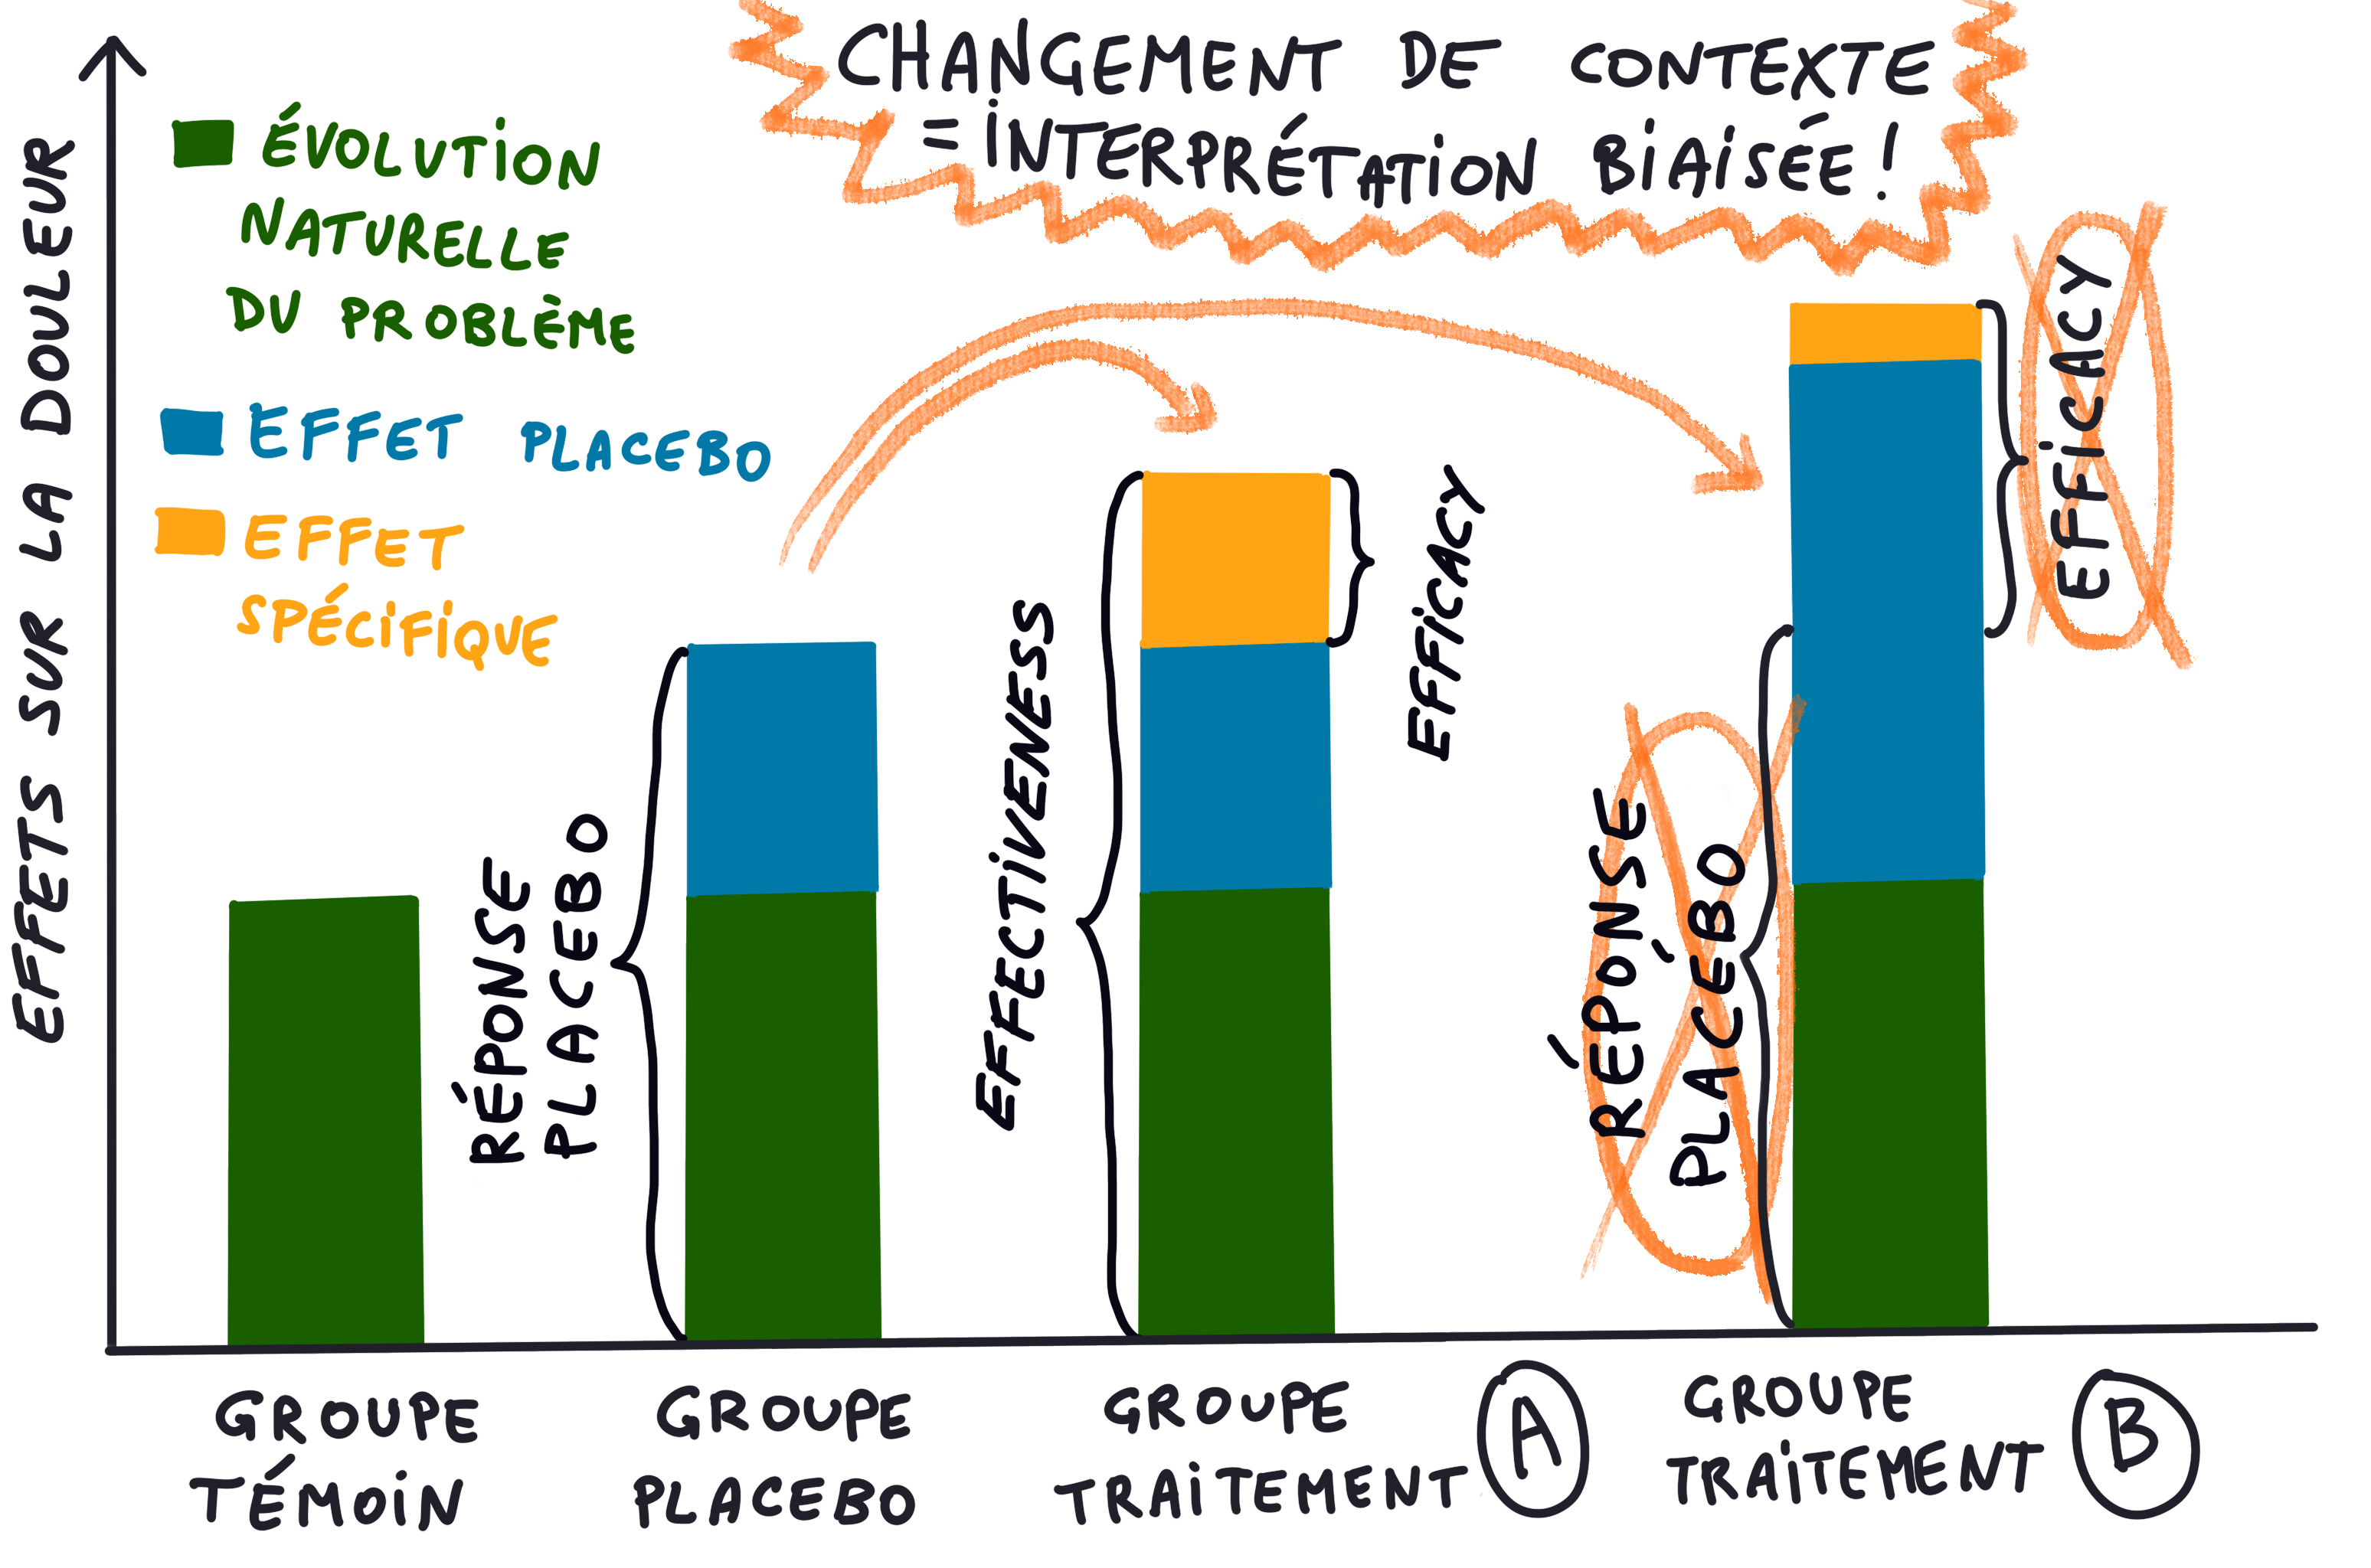 CHANGEMENT DE CONTEXTE
= INTERPRÉTATION BIAISÉE !
EFFETS SUR LA DOULEUR
ÉVOLUTION
NATURELLE
DU PROBLÈME
EFFET PLACEBO
EFFET
SPÉCIFIQUE
RÉPONSE
PLACEBO
EFFECTIVENESS
EFFICACY
RÉPONSE
PLACÉBO
EFFICACY
GROUPE
TÉMOIN
GROUPE
PLACEBO
GROUPE
TRAITEMENT A
GROUPE
TRAITEMENT B